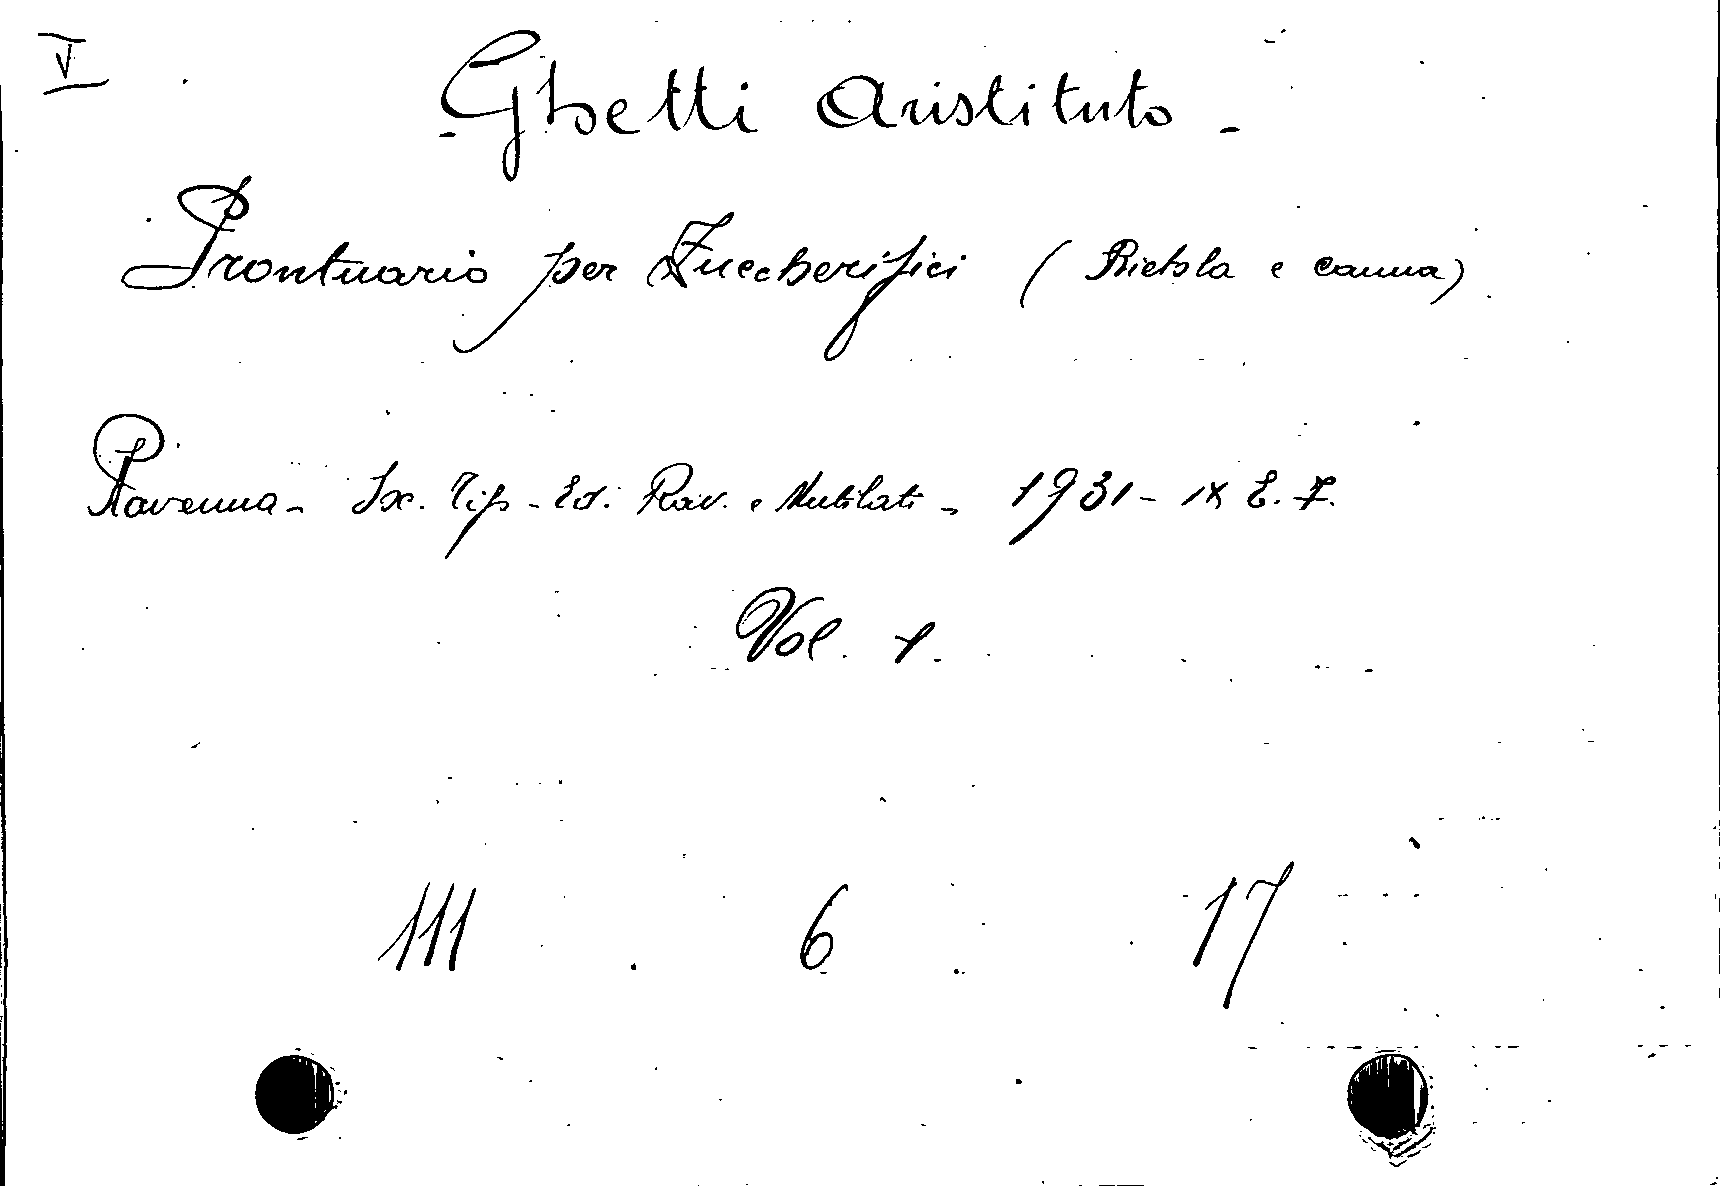 V
- Ghetti Aristituto -
Prontuario per Zuccherifici ( Bietola e canna)
Ravenna - Sx. Tip - Ed. Rav. e Mutilati - 1931 - IX E. F.
Vol. 1.
111 . 6 . 17